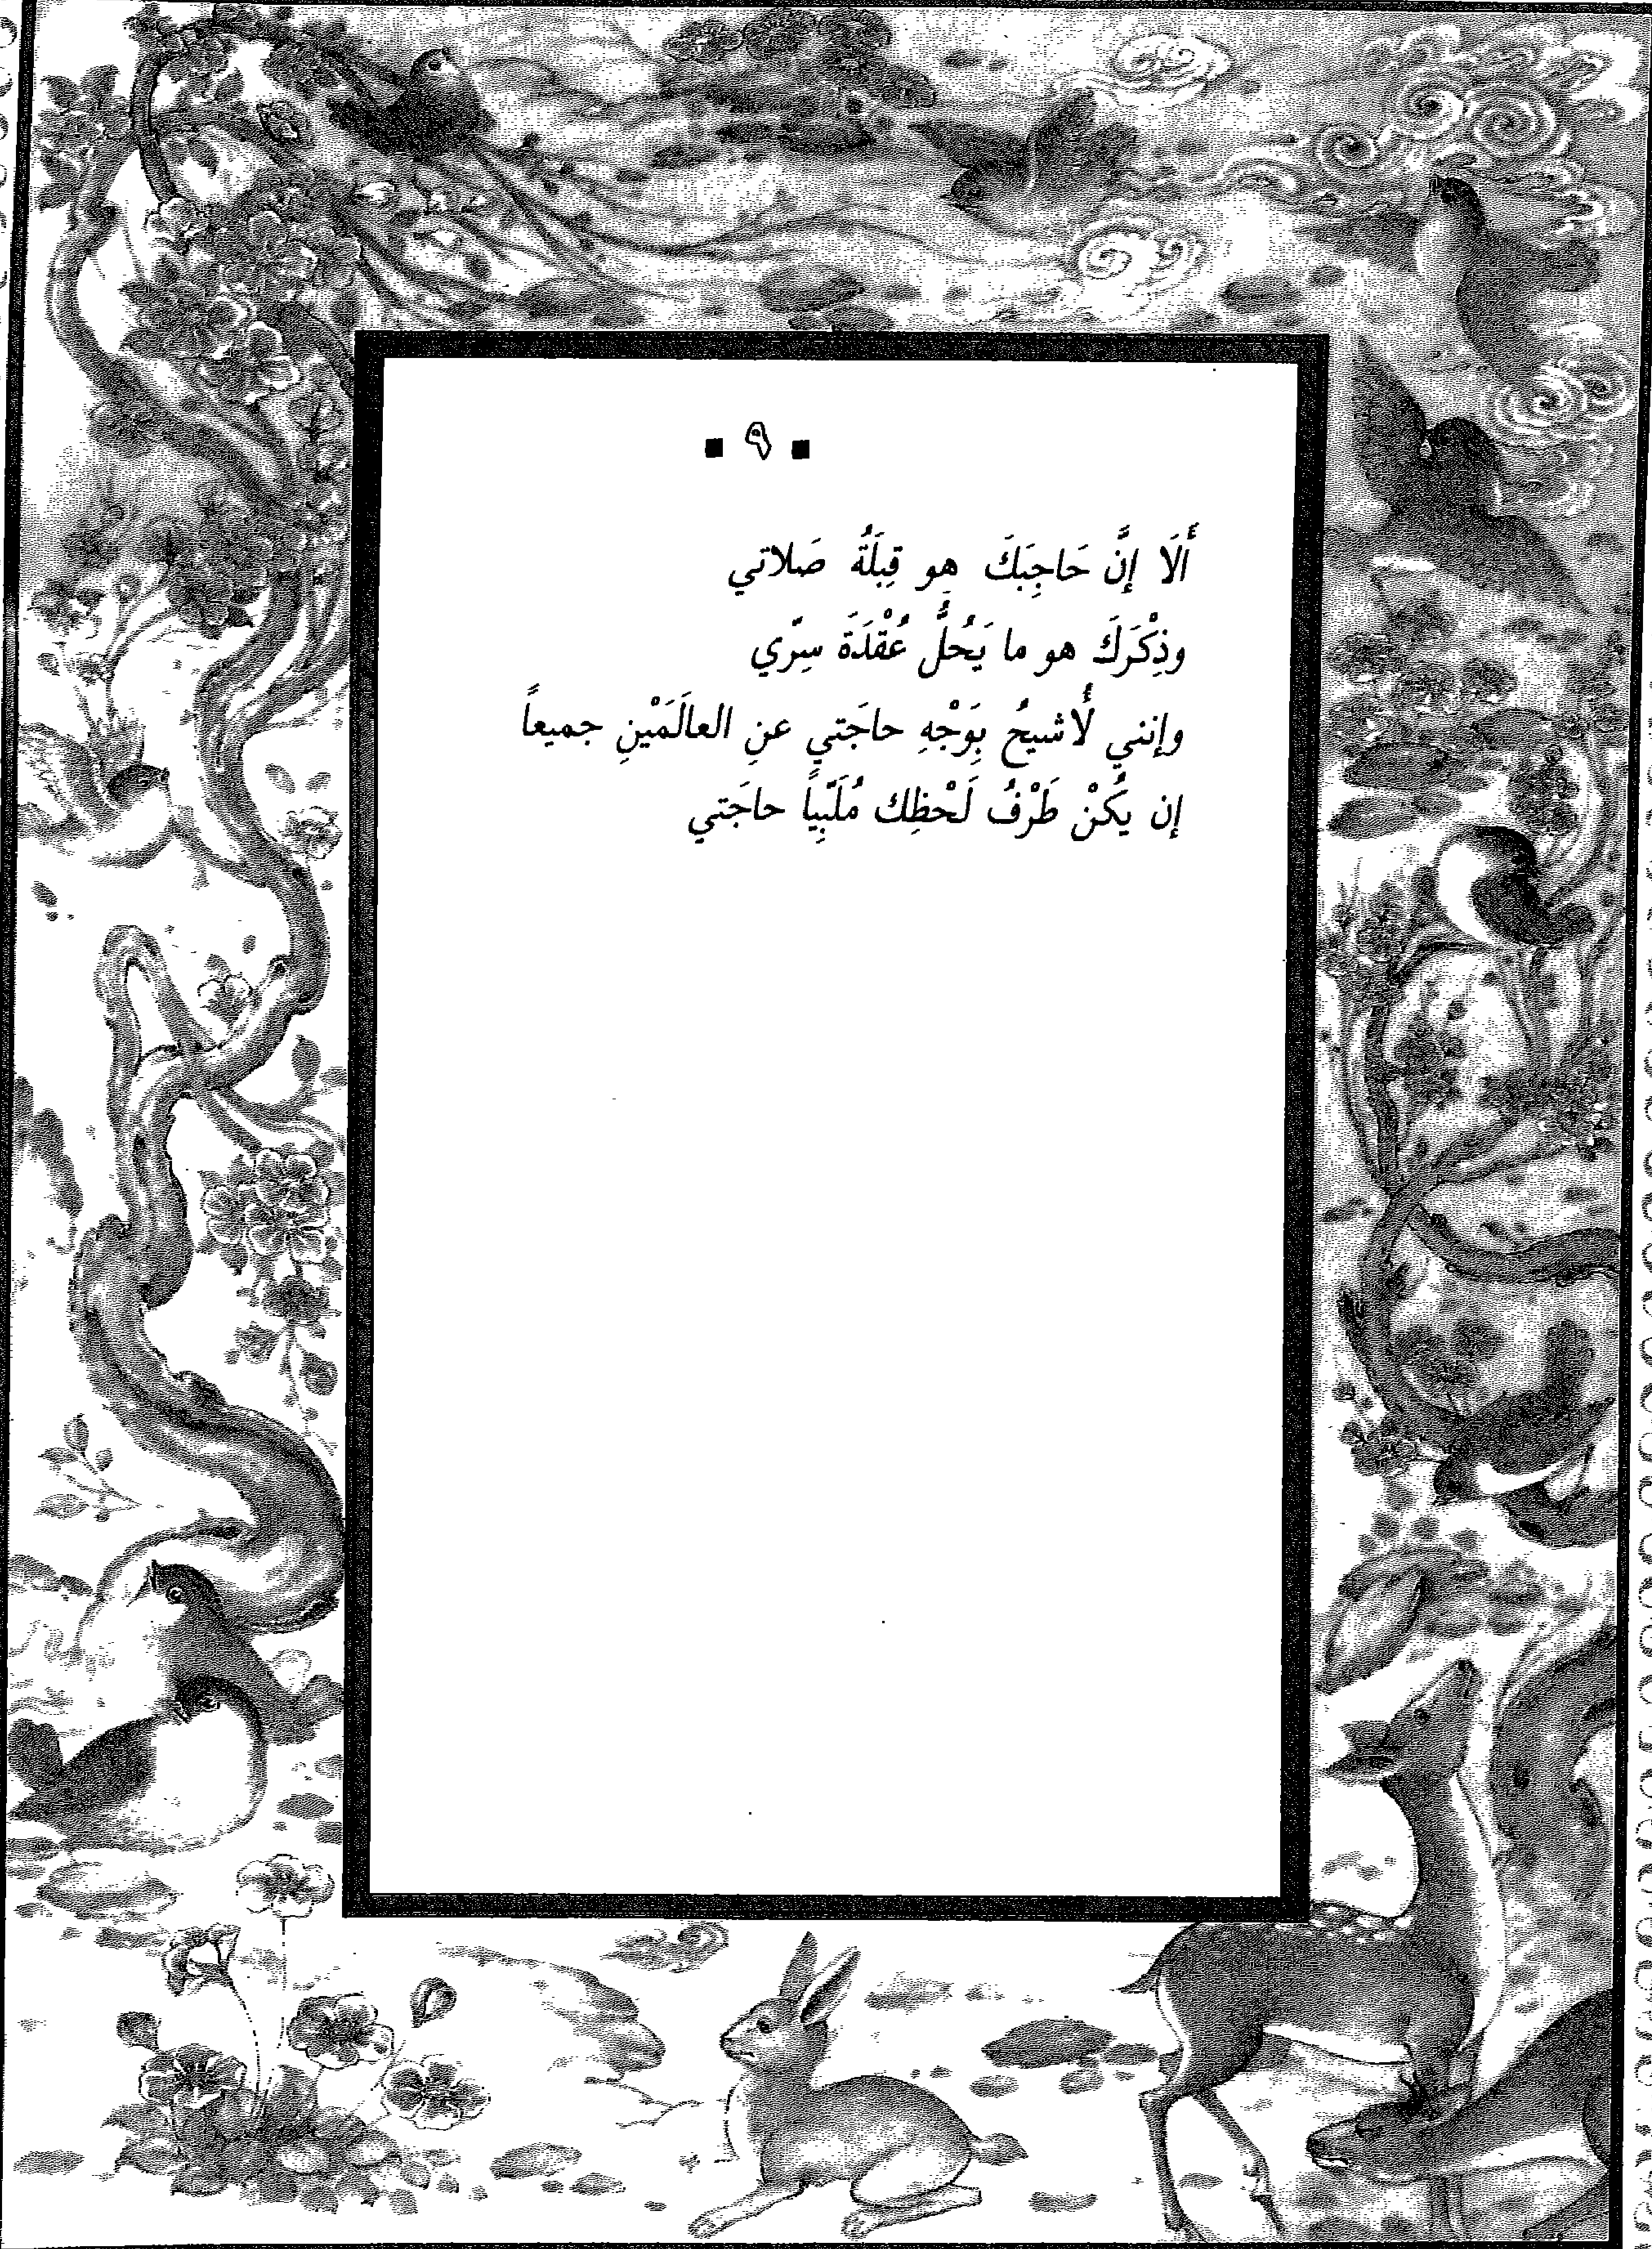 ▪ ٩ ▪
أَلَا إنَّ حَاجِبَكَ هو قِبلَةُ صَلاتي
وذِكْرَكَ هو ما يَحُلُّ عُقْدَةَ سِرّي
وإنني لأُشيحُ بِوَجْهِ حاجَتي عنِ العالَمَيْنِ جميعاً
إن يكُنْ طَرْفُ لَحْظِك مُلَبِّياً حاجَتي